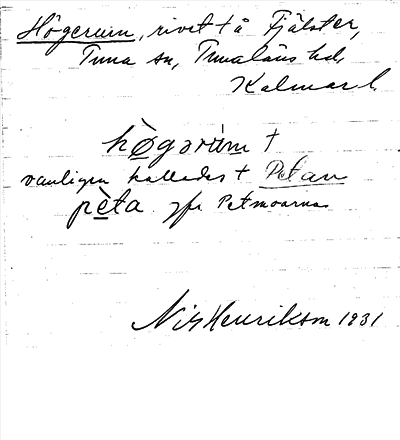 Högerum, rivet t å Fjälster,
Tuna sn, Tunaläns hd,
Kalmar l.
hø̀gərùm t
vanligen kallades t Petan
pèta jfr Petmoarna
Nils Henrikson 1931